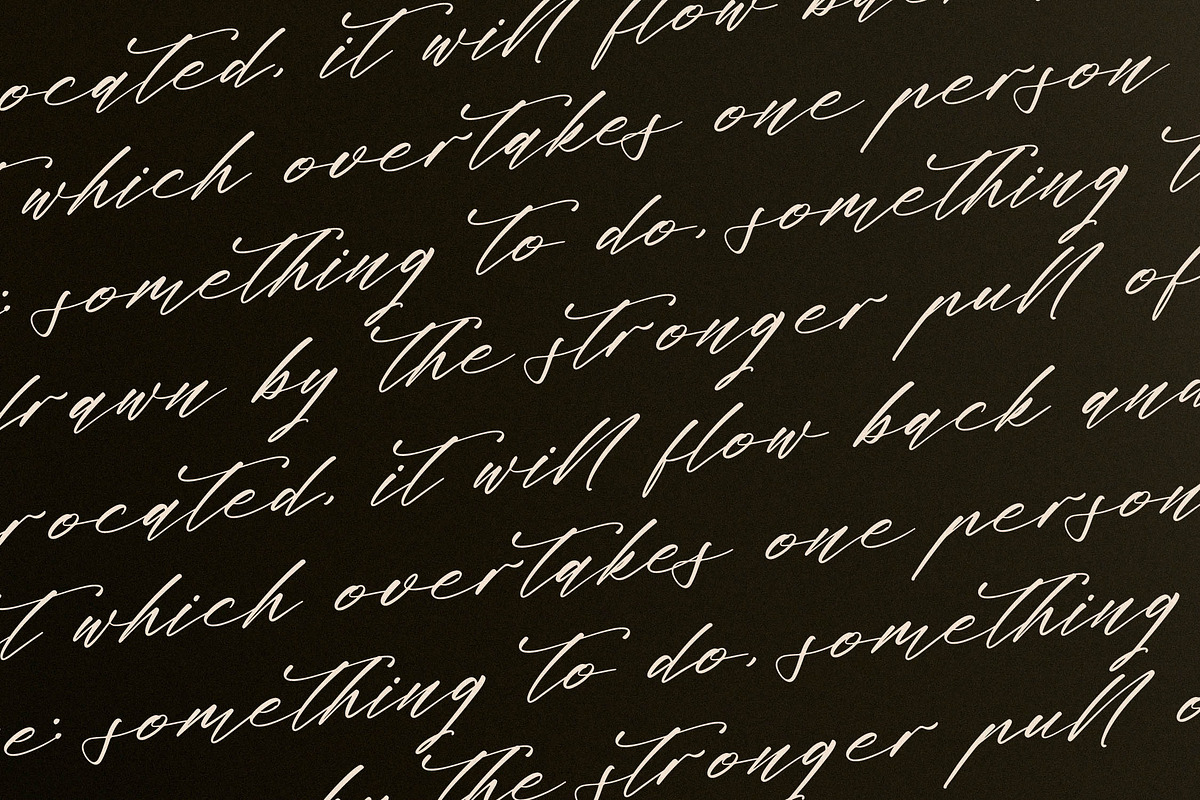 ocated, it will flow back
t which overtakes one person
: something to do, something t
drawn by the stronger pull of
rocated, it will flow back and
t which overtakes one person
e: something to do, something
by the stronger pull o